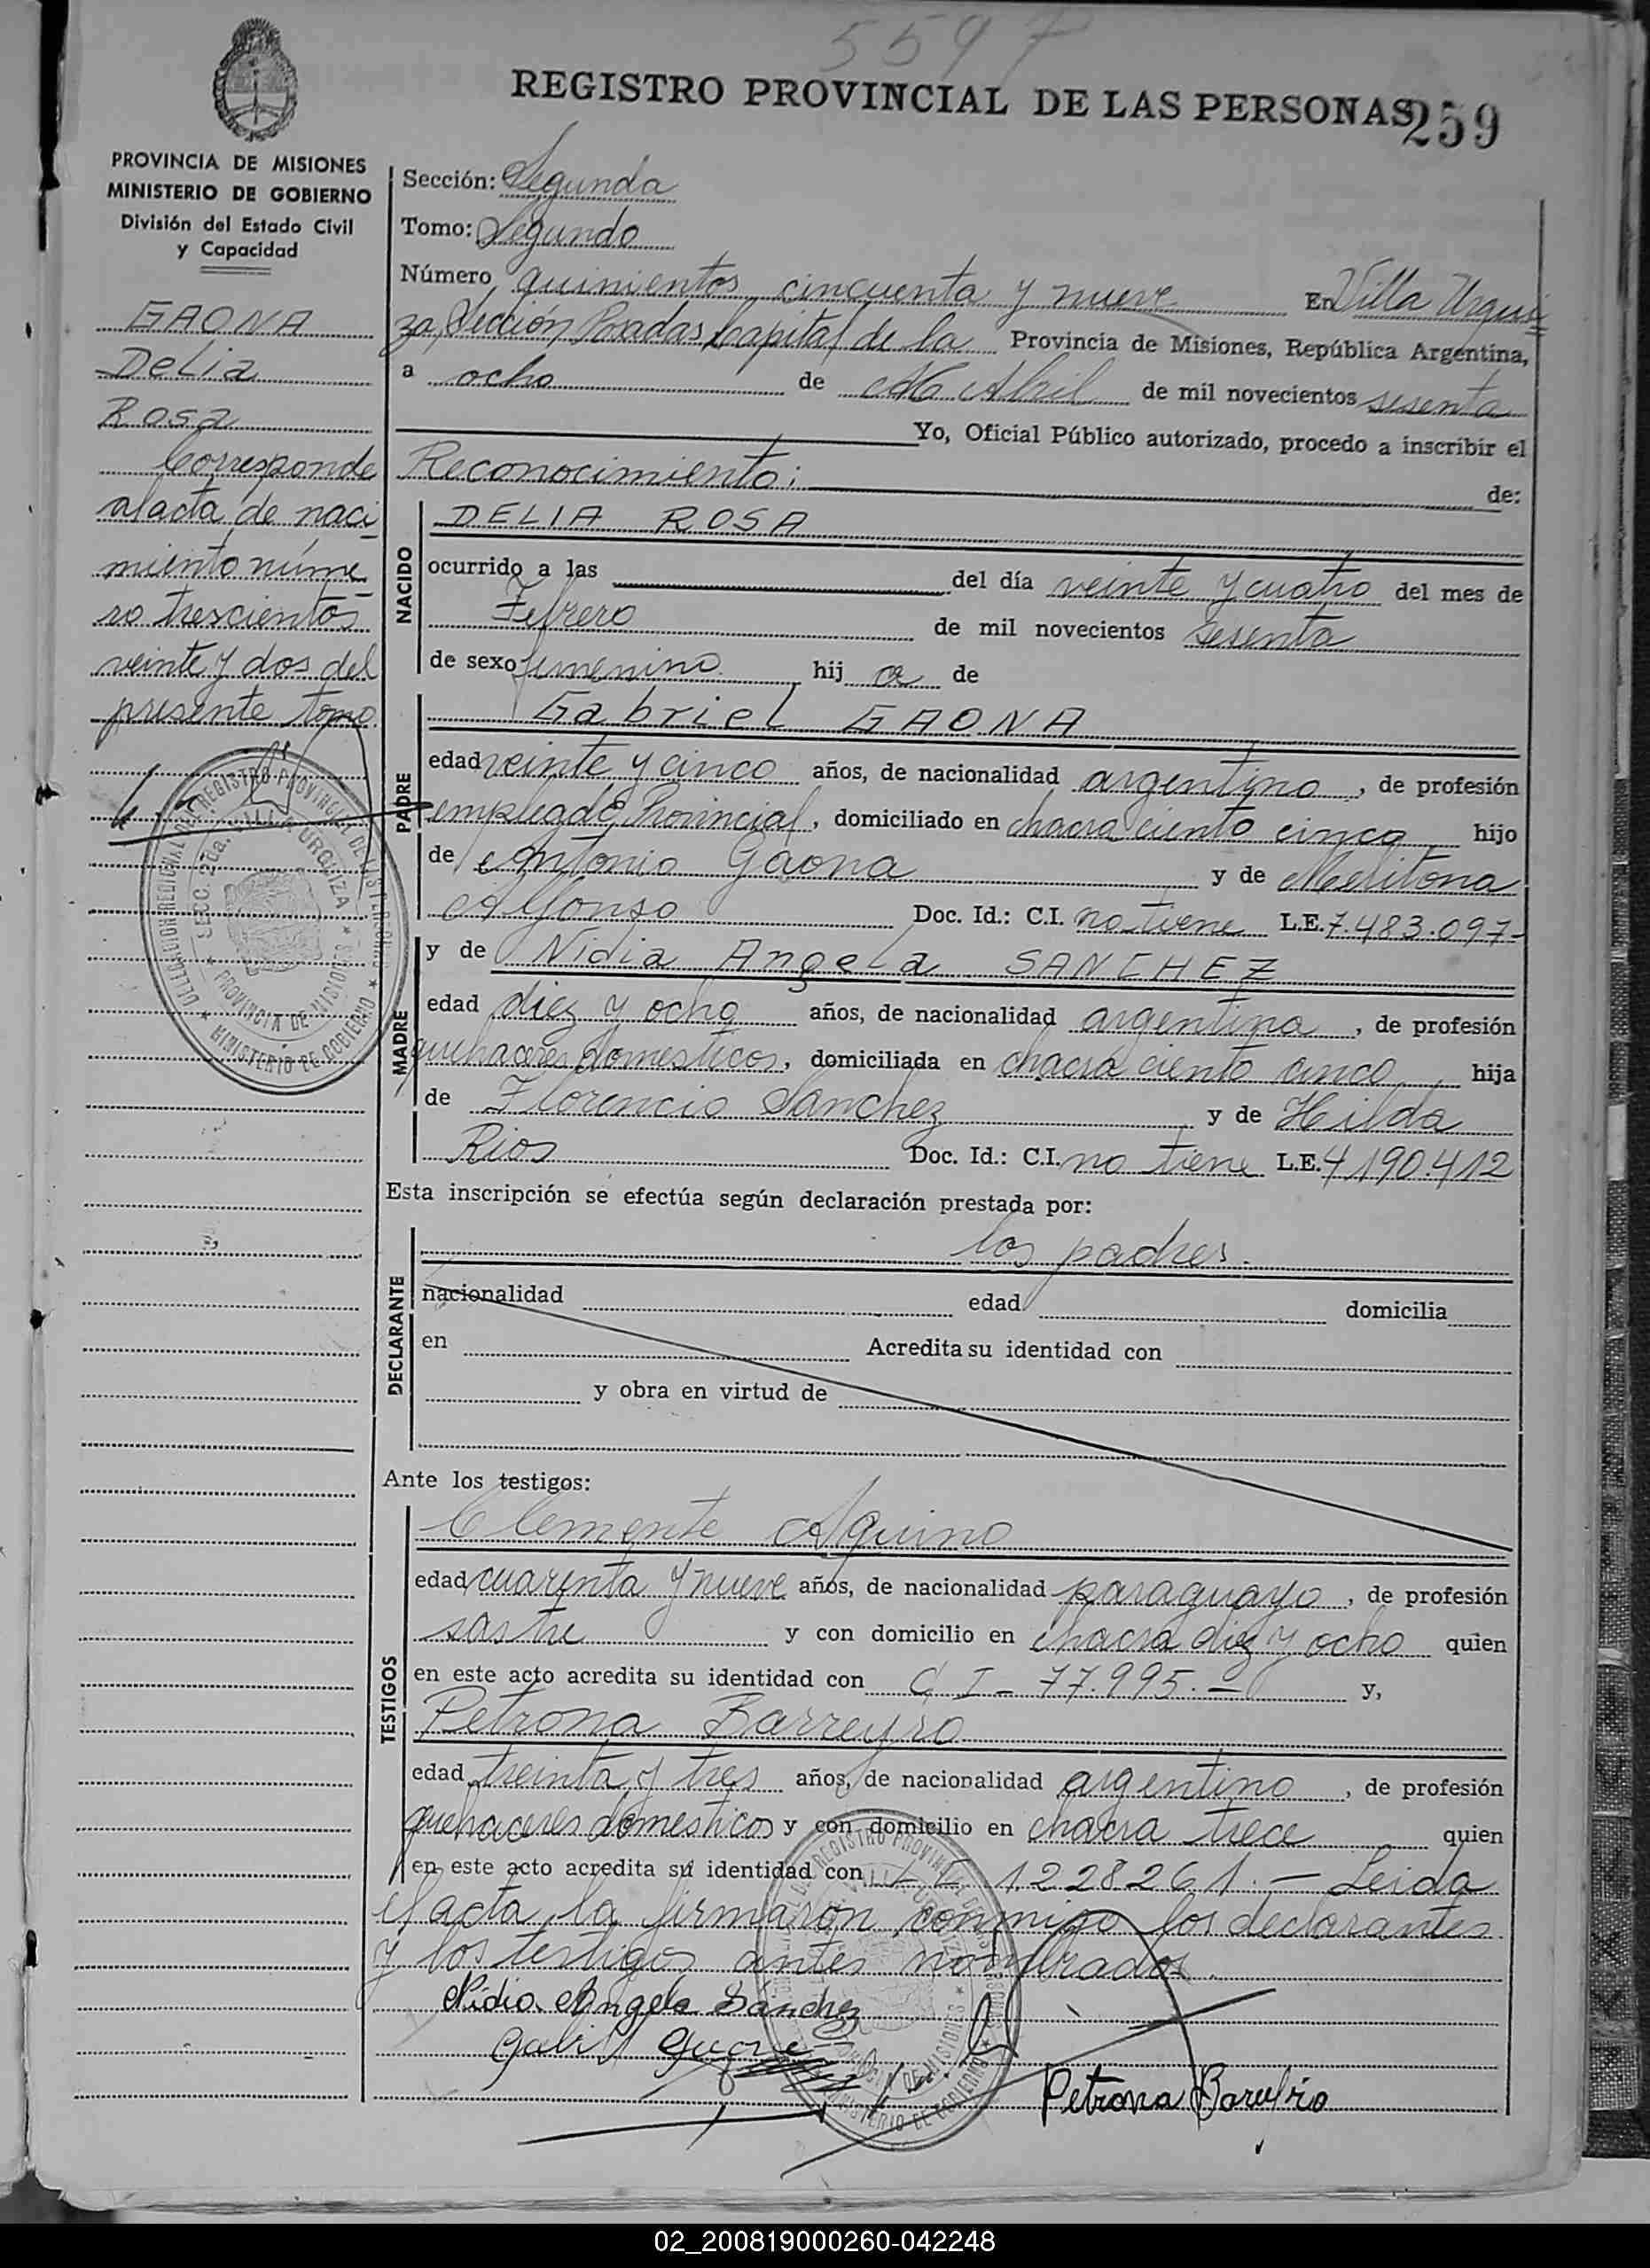 5597
REGISTRO PROVINCIAL DE LAS PERSONAS 259
PROVINCIA DE MISIONES
MINISTERIO DE GOBIERNO
División del Estado Civil
y Capacidad
GAONA
Delia
Rosa
Corresponde
al acta de naci
miento núme
ro trescientos
veinte y dos del
presente tomo
DELEGACION REGIONAL DEL REGISTRO PROVINCIAL DE LAS PERSONAS
SECC. 2da. VILLA URQUIZA
PROVINCIA DE MISIONES
MINISTERIO DE GOBIERNO
Sección: Segunda
Tomo: Segundo
Número quinientos cincuenta y nueve En Villa Urqui
za, Sección Posadas Capital de la Provincia de Misiones, República Argentina,
a ocho de Abril de mil novecientos sesenta
Yo, Oficial Público autorizado, procedo a inscribir el
Reconocimiento: de:
NACIDO
DELIA ROSA
ocurrido a las del día veinte y cuatro del mes de
Febrero de mil novecientos sesenta
de sexo femenino hij a de
PADRE
Gabriel GAONA
edad veinte y cinco años, de nacionalidad argentino, de profesión
empleado Provincial, domiciliado en chacra ciento cinco hijo
de Antonio Gaona y de Melitona
Alfonso Doc. Id.: C.I. no tiene L.E. 7.483.097-
MADRE
y de Nidia Angela SANCHEZ
edad diez y ocho años, de nacionalidad argentina, de profesión
quehaceres domesticos, domiciliada en chacra ciento cinco hija
de Florencio Sanchez y de Hilda
Rios Doc. Id.: C.I. no tiene L.E. 4190.412
Esta inscripción se efectúa según declaración prestada por:
DECLARANTE
los padres.
nacionalidad edad domicilia
en Acredita su identidad con
y obra en virtud de
Ante los testigos:
TESTIGOS
Clemente Aquino
edad cuarenta y nueve años, de nacionalidad paraguayo, de profesión
sastre y con domicilio en chacra diez y ocho quien
en este acto acredita su identidad con C I - 77.995.- y,
Petrona Barreyro
edad treinta y tres años, de nacionalidad argentino, de profesión
quehaceres domesticos y con domicilio en chacra trece quien
en este acto acredita su identidad con 1.228261.- Leida
el acta la firmaron conmigo los declarantes
y los testigos antes nombrados.
Nidia Angela Sánchez
Petrona Bareyro
02_200819000260-042248